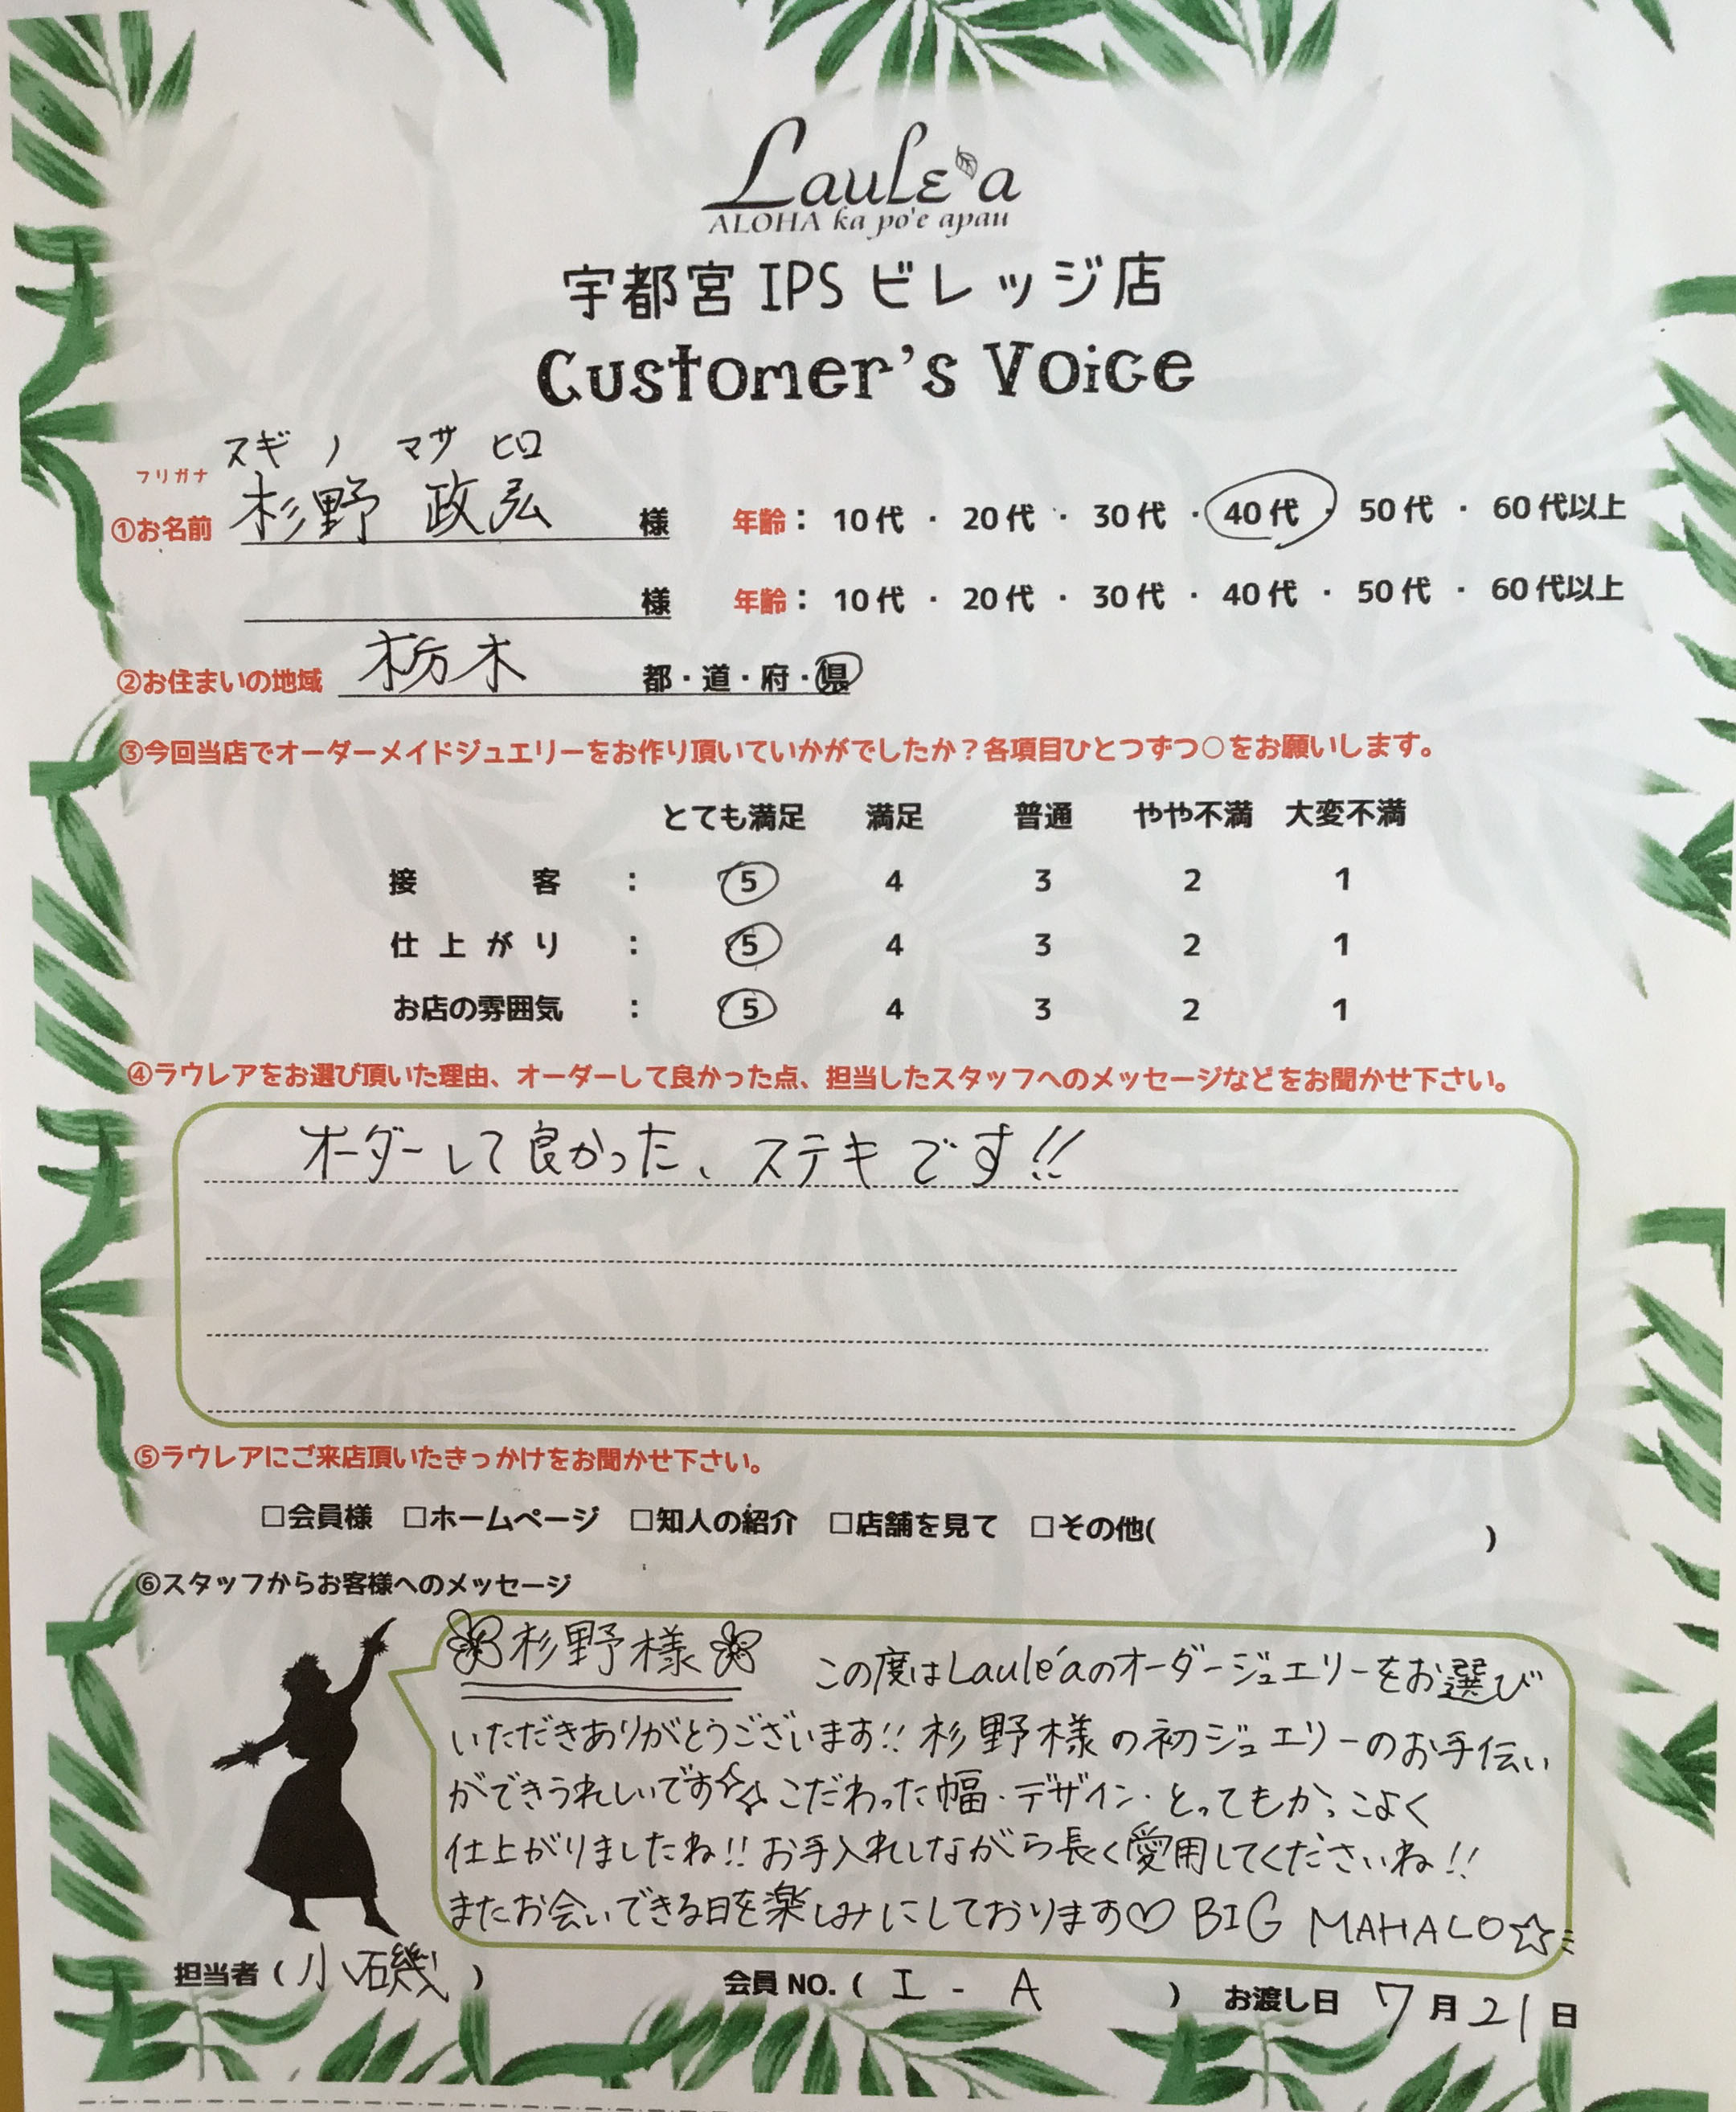 Laule'a
ALOHA ka po'e apau
宇都宮 IPS ビレッジ店
Customer's Voice
スギノ マサヒロ
フリガナ
①お名前 杉野 政弘 様 年齢：10代 ・ 20代 ・ 30代 ・ 40代 ・ 50代 ・ 60代以上
様 年齢：10代 ・ 20代 ・ 30代 ・ 40代 ・ 50代 ・ 60代以上
②お住まいの地域 栃木 都・道・府・県
③今回当店でオーダーメイドジュエリーをお作り頂いていかがでしたか？各項目ひとつずつ○をお願いします。
とても満足 満足 普通 やや不満 大変不満
接客 ： 5 4 3 2 1
仕上がり ： 5 4 3 2 1
お店の雰囲気 ： 5 4 3 2 1
④ラウレアをお選び頂いた理由、オーダーして良かった点、担当したスタッフへのメッセージなどをお聞かせ下さい。
オーダーして良かった、ステキです!!
⑤ラウレアにご来店頂いたきっかけをお聞かせ下さい。
□会員様 □ホームページ □知人の紹介 □店舗を見て □その他( )
⑥スタッフからお客様へのメッセージ
杉野様 この度はLaule'aのオーダージュエリーをお選び
いただきありがとうございます!! 杉野様の初ジュエリーのお手伝い
ができうれしいです☆ こだわった幅・デザイン・とってもかっこよく
仕上がりましたね!! お手入れしながら長く愛用してくださいね!!
またお会いできる日を楽しみにしております♡ BIG MAHALO☆
担当者（小磯） 会員NO.（ I - A ） お渡し日 7月21日